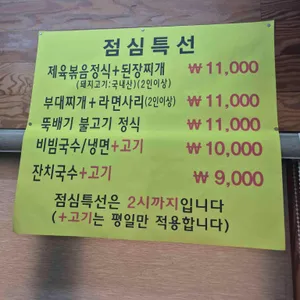 점심특선
제육볶음정식+된장찌개 ₩ 11,000
(돼지고기:국내산)(2인이상)
부대찌개+라면사리(2인이상) ₩ 11,000
뚝배기 불고기 정식 ₩ 11,000
비빔국수/냉면+고기 ₩ 10,000
잔치국수+고기 ₩ 9,000
점심특선은 2시까지입니다
(+고기는 평일만 적용합니다)